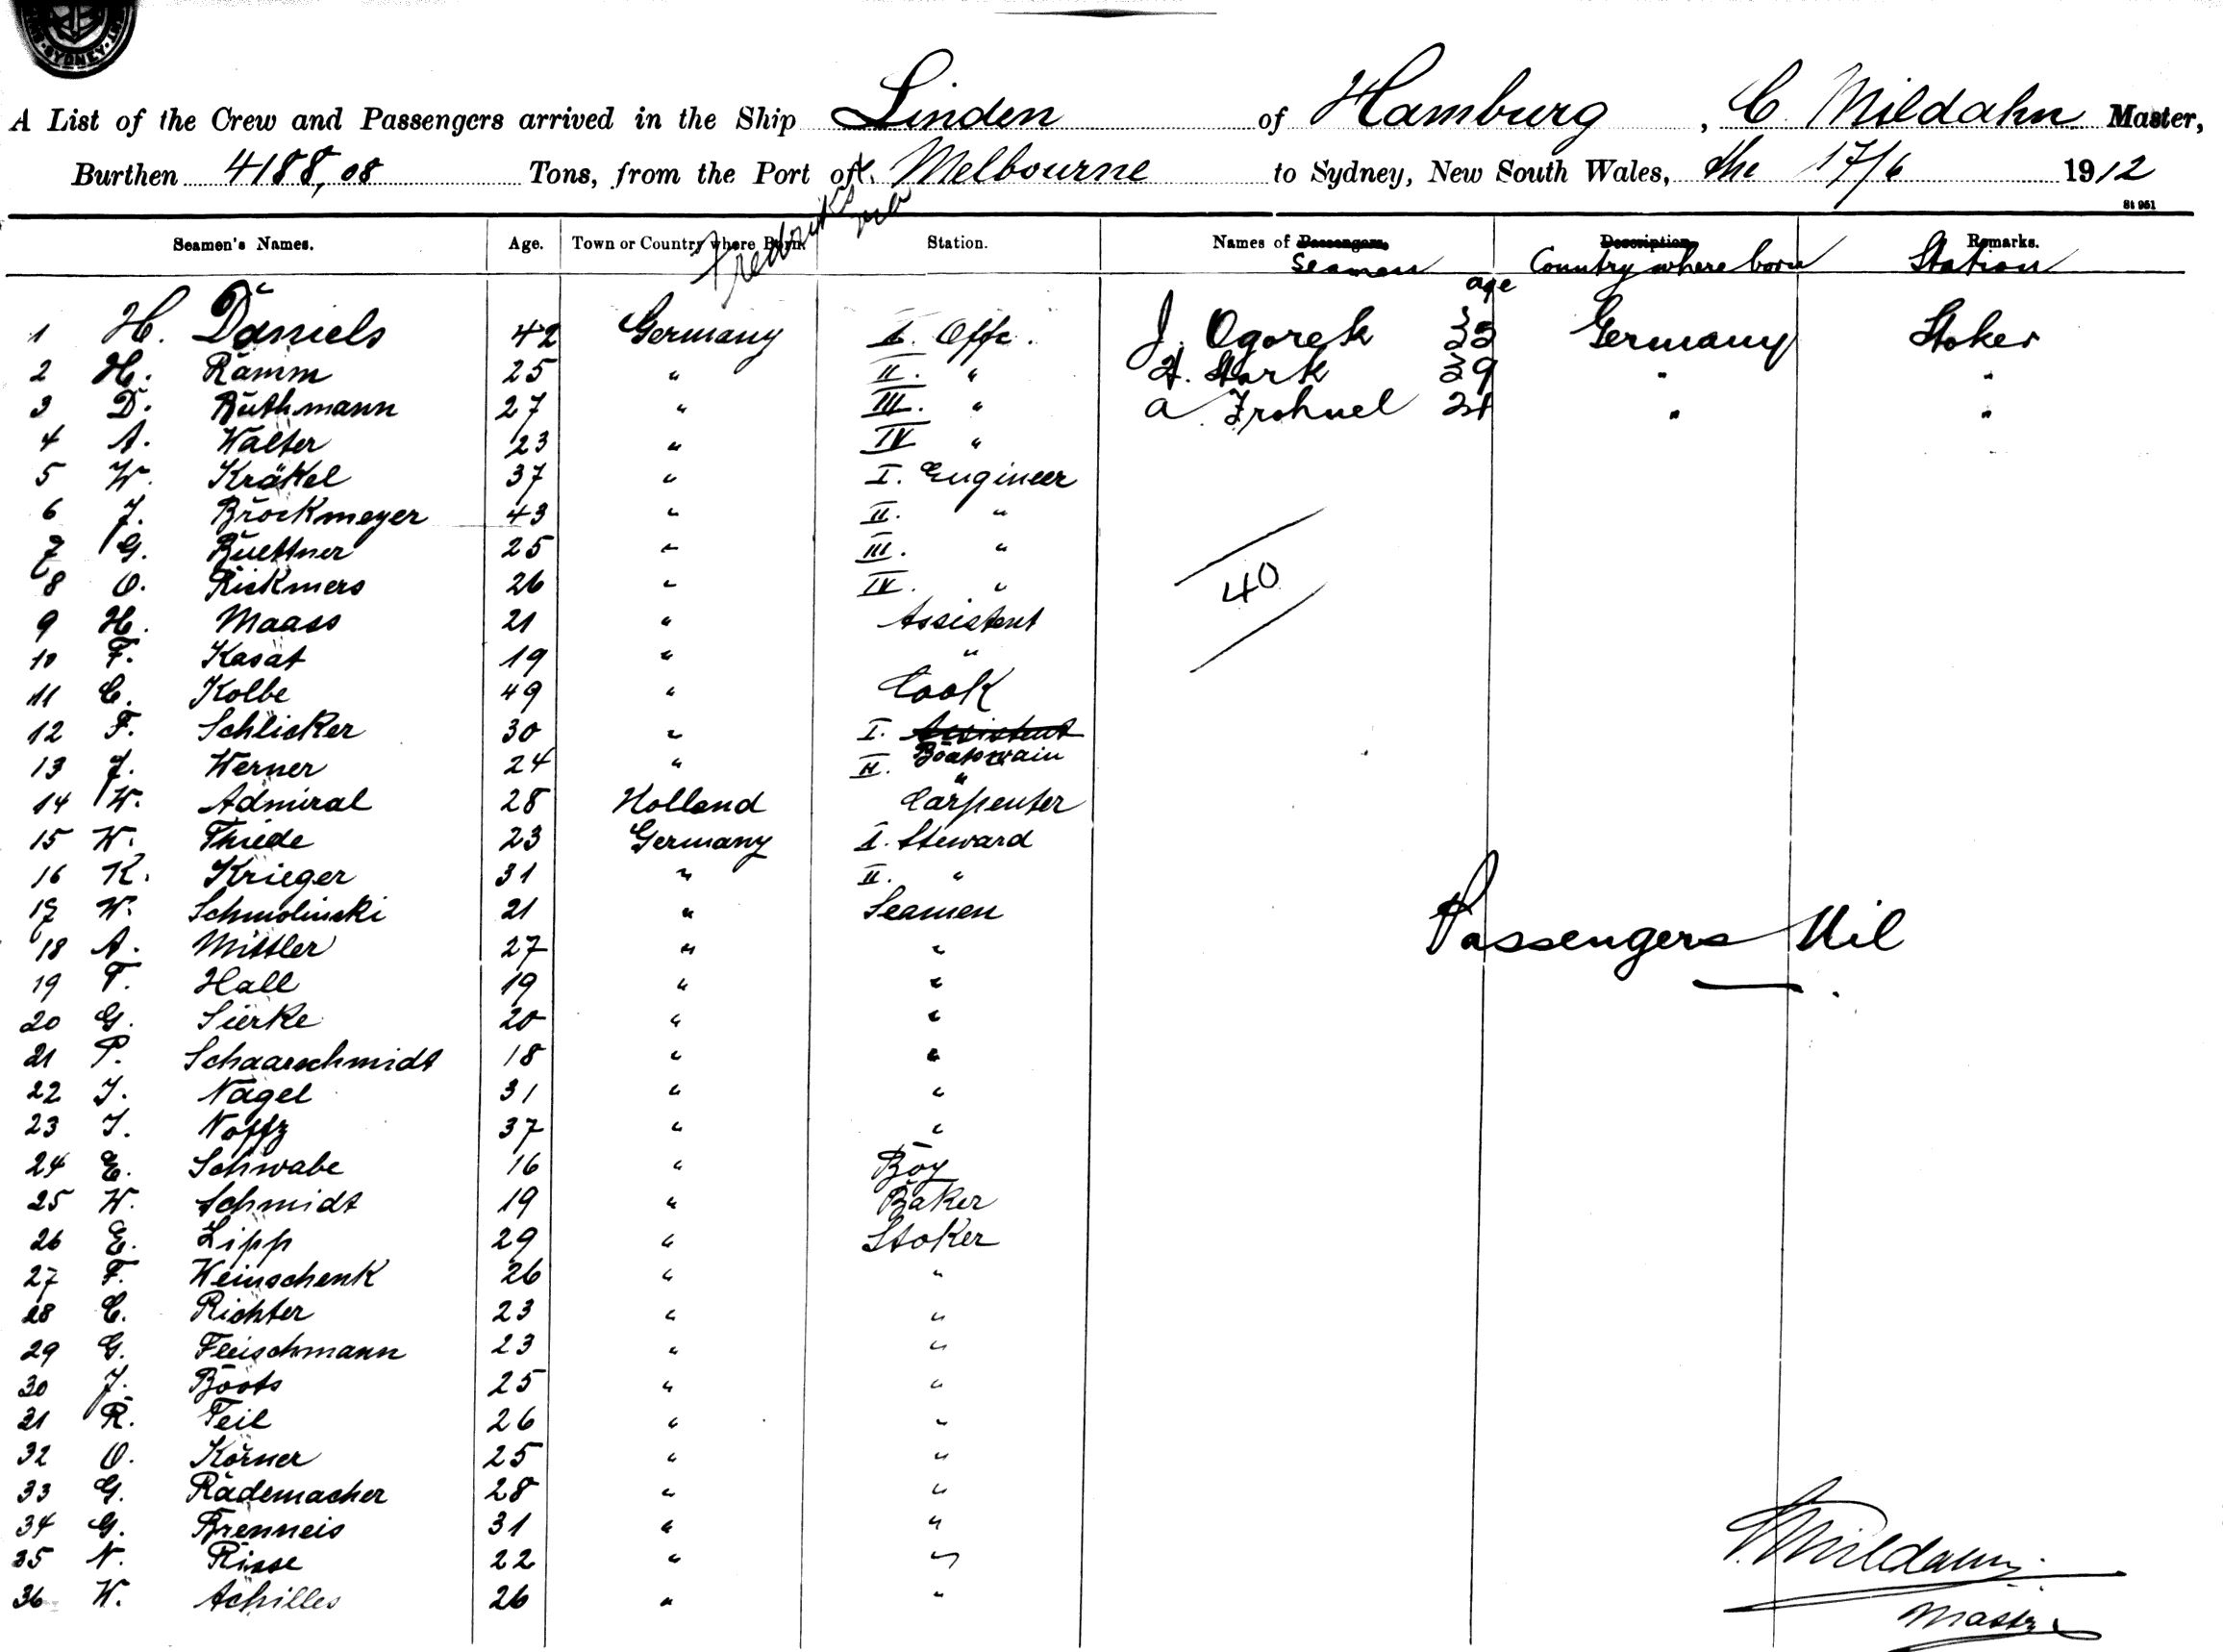 SYDNEY
A List of the Crew and Passengers arrived in the Ship Linden of Hamburg, C. Mildahn Master,
Burthen 4188,08 Tons, from the Port of Melbourne to Sydney, New South Wales, the 17/6 1912
St 951
Seamen's Names. Age. Town or Country where Born. Station. Names of Passengers, Description, Remarks.
Seamen age Country where born Station
1 H. Daniels 42 Germany I. Offc. J. Ogorek 35 Germany Stoker
2 H. Ramm 25 " II. " H. Stark 39 " "
3 D. Ruthmann 27 " III. " A Frohnel 21 " "
4 A. Walter 23 " IV "
5 W. Kräkel 37 " I. Engineer
6 J. Brockmeyer 43 " II. "
7 G. Buettner 25 " III. "
8 O. Rickmers 26 " IV. "
40
9 H. Maass 21 " Assistent
10 F. Kasat 19 " "
11 C. Kolbe 49 " Cook
12 F. Schlicker 30 " I. Assistent
Boatswain
13 J. Werner 24 " II. "
14 W. Admiral 28 Holland Carpenter
15 W. Thiede 23 Germany I. Steward
16 K. Krieger 31 " II. "
17 W. Schmolinski 21 " Seamen
18 A. Mittler 27 " "
Passengers Nil
19 F. Hall 19 " "
20 G. Sierke 20 " "
21 P. Schaarschmidt 18 " "
22 J. Nagel 31 " "
23 J. Noffz 37 " "
24 E. Schwabe 16 " Boy
25 W. Schmidt 19 " Baker
26 E. Lipp 29 " Stoker
27 F. Weinschenk 26 " "
28 C. Richter 23 " "
29 G. Fleischmann 23 " "
30 J. Boots 25 " "
31 R. Teil 26 " "
32 O. Körner 25 " "
33 G. Rademacher 28 " "
34 G. Brenneis 31 " "
35 N. Risse 22 " "
36 W. Achilles 26 " "
C. Mildahn
Master